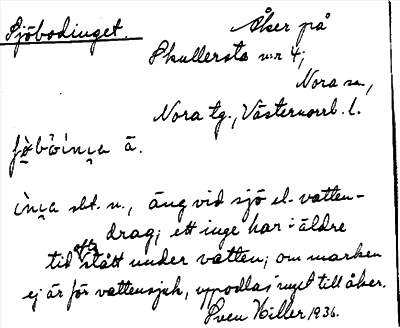 Sjöbodinget.
Åker på
Skullersta nr 4,
Nora sn,
Nora tg., Västernorrl. l.
ä.
sbt. n., äng vid sjö el. vatten-
drag; ett inge har i äldre
tid ofta stått under vatten; om marken
ej är för vattensjuk, uppodlas inget till åker.
Sven Hiller 1936.